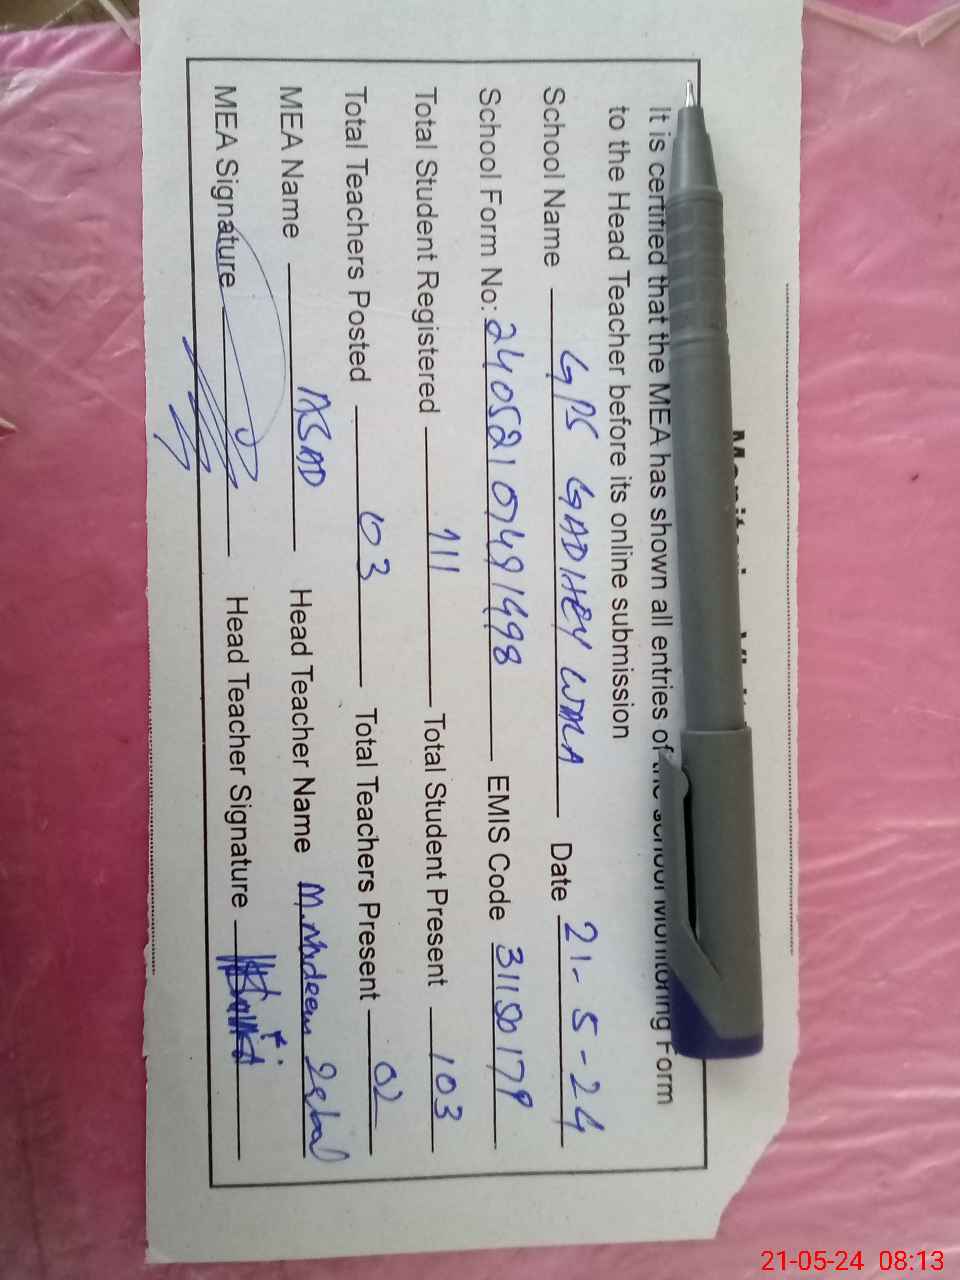 It is certified that the MEA has shown all entries of the School Monitoring Form
to the Head Teacher before its online submission
School Name GPS GADHEY WALA Date 21-5-24
School Form No: 24052107491498 EMIS Code 31150179
Total Student Registered 111 Total Student Present 103
Total Teachers Posted 03 Total Teachers Present 02
MEA Name ASAD Head Teacher Name M. Nadeem Iqbal
MEA Signature Head Teacher Signature
21-05-24 08:13